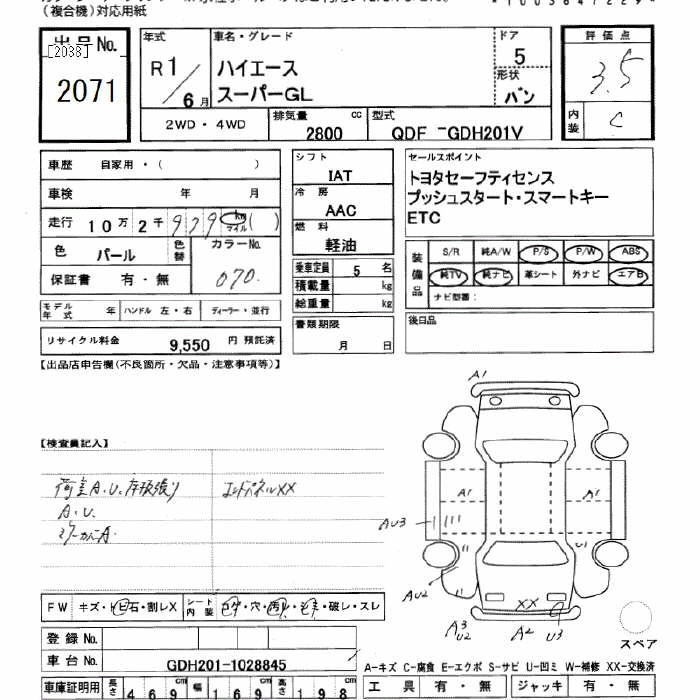 (複合機)対応用紙
出品No.
[2038]
2071
年式
R1/6月
車名・グレード
ハイエース
スーパーGL
ドア
5
形状
バン
評価点
3.5
内装
C
2WD・4WD
排気量
2800
cc
型式
QDF -GDH201V
車歴 自家用・( )
車検 年 月
走行 10万2千979 km マイル ( )
色 パール 色替 カラーNo. 070.
保証書 有・無
モデル年式 年 ハンドル 左・右 ディーラー・並行
リサイクル料金 9,550 円 預託済
シフト
IAT
冷房
AAC
燃料
軽油
乗車定員 5 名
積載量 kg
総重量 kg
書類期限
月 日
セールスポイント
トヨタセーフティセンス
プッシュスタート・スマートキー
ETC
装備品
S/R 純A/W P/S P/W ABS
純TV 純ナビ 革シート 外ナビ エアB
ナビ型番:
後日品
【出品店申告欄(不良箇所・欠品・注意事項等)】
【検査員記入】
荷室A.U.床張り
A.U.
ミラーカバーA.
エンドパネルXX
A1
A1
A1
AU3
AU2
A3
U2
A2
U3
XX
FW キズ・トビ石・割レX シート内装 コゲ・穴・汚レ・シミ・破レ・スレ
登録No.
車台No. GDH201-1028845
車庫証明用 長さ 469cm 幅 169cm 高さ 198cm
スペア
A-キズ C-腐食 E-エクボ S-サビ U-凹ミ W-補修 XX-交換済
工具 有・無 ジャッキ 有・無